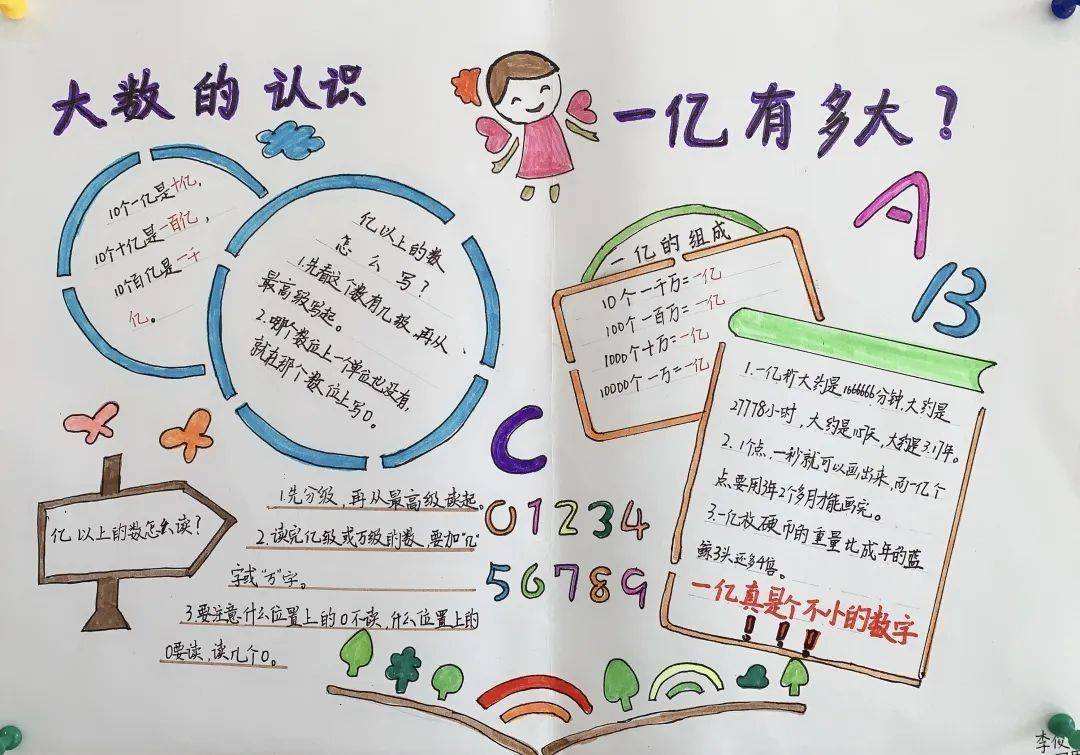 大数的认识
10个一亿是十亿，
10个十亿是一百亿，
10个百亿是一千
亿。
亿以上的数
怎么写？
1.先看这个数有几级，再从
最高级写起。
2.哪个数位上一个单位也没有，
就在那个数位上写0。
亿以上的数怎么读？
1.先分级，再从最高级读起。
2.读完亿级或万级的数，要加“亿”
字或“万”字。
3.要注意什么位置上的0不读，什么位置上的
0要读，读几个0。
一亿有多大？
一亿的组成
10个一千万=一亿
100个一百万=一亿
1000个十万=一亿
10000个一万=一亿
A
B
C
0 1 2 3 4
5 6 7 8 9
1.一亿秒大约是1666666分钟，大约是
27778小时，大约是1157天，大约是3.17年。
2.1个点，一秒就可以画出来，而一亿个
点要用3年2个多月才能画完。
3.一亿枚硬币的重量比成年的蓝
鲸3头还多4倍。
一亿真是个不小的数字
！！！
李